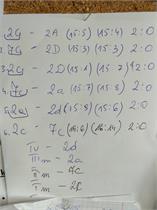 2G - 2A (15:5) (15:4) 2:0
7G - 2D (15:3) (15:3) 2:0
3. 2G - 2D (15:1) (15:7) 2:0
4. 7C - 2a (15:7) (15:8) 2:0
5. 2a - 2d (15:8) (15:6) 2:0
6. 2C - 7C (15:6) (16:14) 2:0
IV - 2d
III m - 2a
II m - 7C
I m - 2C